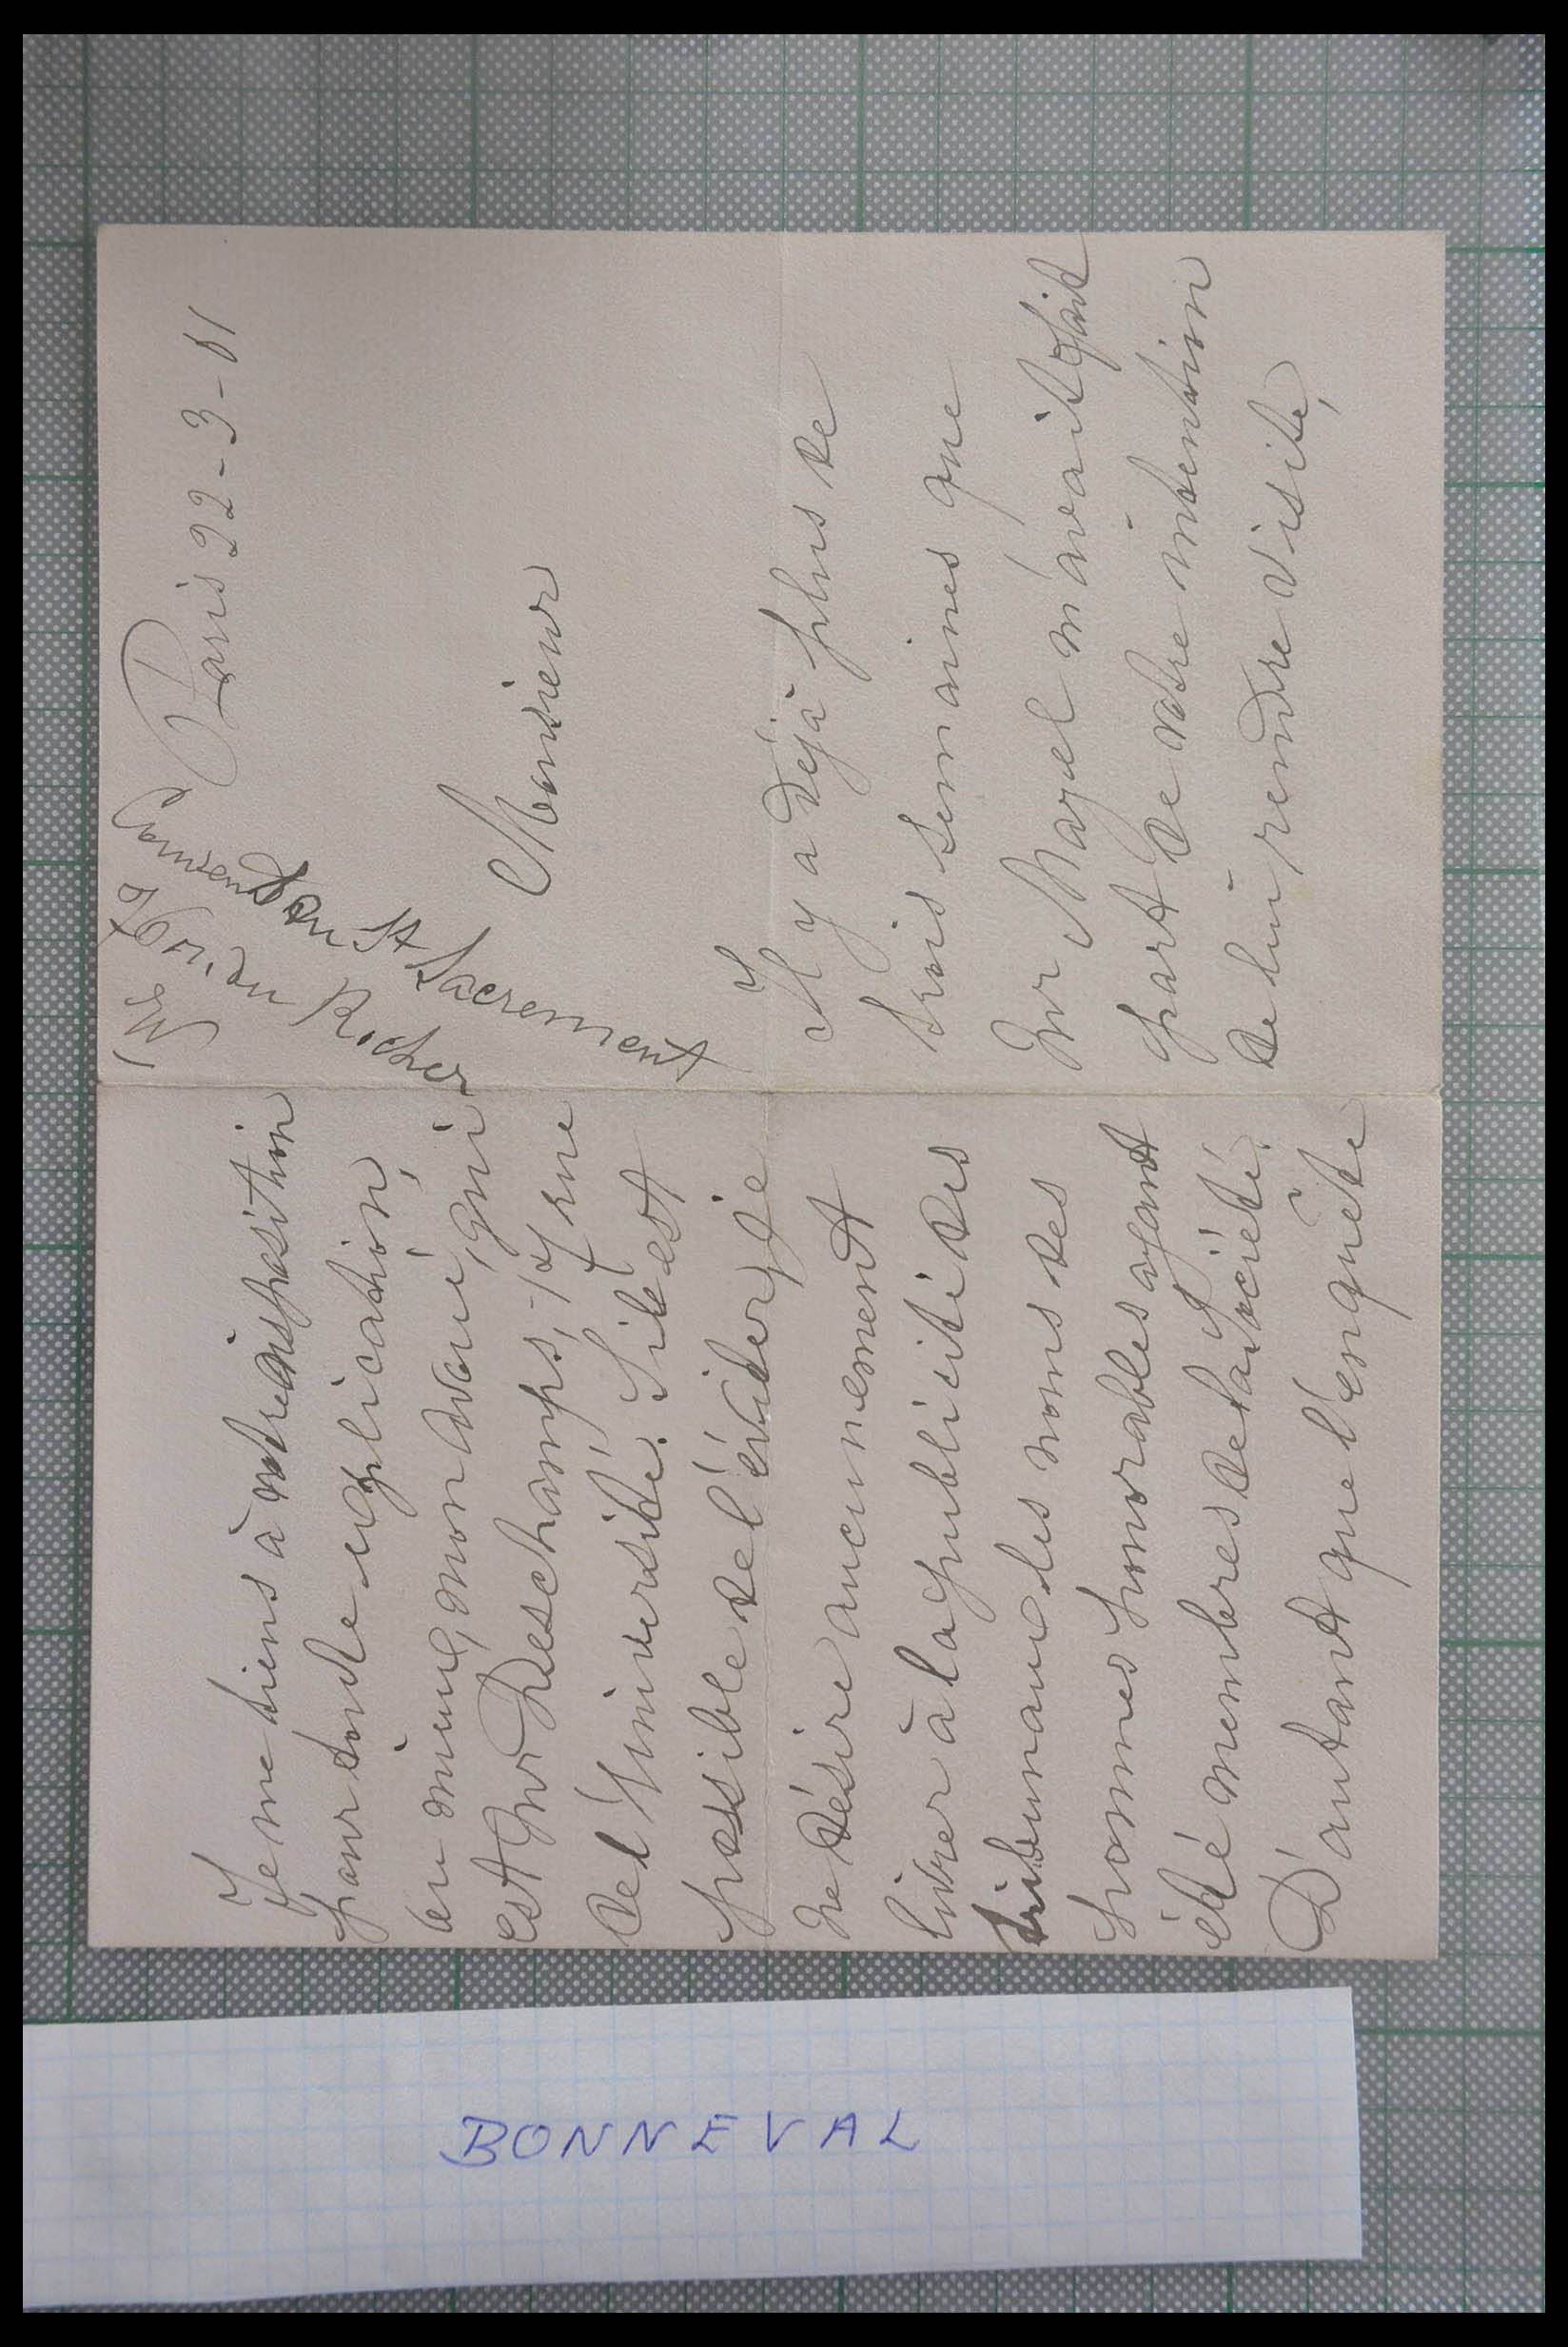 Paris 22-3-01
du Rocher
Couvent du St
Sacrement
Monsieur
Il y a déjà plus de
trois semaines que
Mr Mazel m'avait fait
part de votre intention
de lui rendre visite,
Je me tiens à votre disposition
pour toute explication,
ou mieux, mon avoué, qui
est Mr Deschamps, 17 rue
de l'Université. S'il est
possible de l'éviter, je
ne désire aucunement
livrer à la publicité des
tribunaux les noms des
hommes honorables ayant
été membres de la Société.
D'autant que l'enquête
BONNEVAL